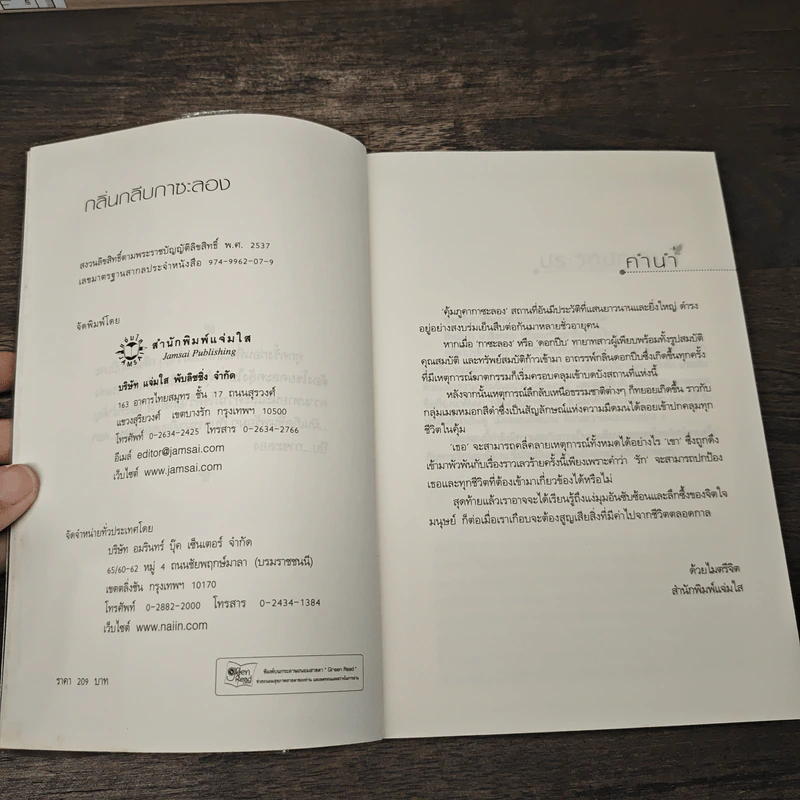 กลิ่นกลีบกาซะลอง
สงวนลิขสิทธิ์ตามพระราชบัญญัติลิขสิทธิ์ พ.ศ. 2537
เลขมาตรฐานสากลประจำหนังสือ 974-9962-07-9
จัดพิมพ์โดย
สำนักพิมพ์แจ่มใส
Jamsai Publishing
บริษัท แจ่มใส พับลิชชิ่ง จำกัด
163 อาคารไทยสมุทร ชั้น 17 ถนนสุรวงศ์
แขวงสุริยวงศ์ เขตบางรัก กรุงเทพฯ 10500
โทรศัพท์ 0-2634-2425 โทรสาร 0-2634-2766
อีเมล์ editor@jamsai.com
เว็บไซต์ www.jamsai.com
จัดจำหน่ายทั่วประเทศโดย
บริษัท อมรินทร์ บุ๊ค เซ็นเตอร์ จำกัด
65/60-62 หมู่ 4 ถนนชัยพฤกษ์มาลา (บรมราชชนนี)
เขตตลิ่งชัน กรุงเทพฯ 10170
โทรศัพท์ 0-2882-2000 โทรสาร 0-2434-1384
เว็บไซต์ www.naiin.com
ราคา 209 บาท
Green Read
พิมพ์บนกระดาษถนอมสายตา "Green Read"
คำนำ
'คุ้มภูคากาซะลอง' สถานที่อันมีประวัติที่แสนยาวนานและยิ่งใหญ่ ดำรง
อยู่อย่างสงบร่มเย็นสืบต่อกันมาหลายชั่วอายุคน
หากเมื่อ 'กาซะลอง' หรือ 'ดอกปีบ' ทายาทสาวผู้เพียบพร้อมทั้งรูปสมบัติ
คุณสมบัติ และทรัพย์สมบัติก้าวเข้ามา อาถรรพ์กลิ่นดอกปีบซึ่งเกิดขึ้นทุกครั้ง
ที่มีเหตุการณ์ฆาตกรรมก็เริ่มครอบคลุมเข้าบดบังสถานที่แห่งนี้
หลังจากนั้นเหตุการณ์ลึกลับเหนือธรรมชาติต่างๆ ก็ทยอยเกิดขึ้น ราวกับ
กลุ่มเมฆหมอกสีดำซึ่งเป็นสัญลักษณ์แห่งความมืดมนได้ลอยเข้าปกคลุมทุก
ชีวิตในคุ้ม
'เธอ' จะสามารถคลี่คลายเหตุการณ์ทั้งหมดได้อย่างไร 'เขา' ซึ่งถูกดึง
เข้ามาพัวพันกับเรื่องราวเลวร้ายครั้งนี้เพียงเพราะคำว่า 'รัก' จะสามารถปกป้อง
เธอและทุกชีวิตที่ต้องเข้ามาเกี่ยวข้องได้หรือไม่
สุดท้ายแล้วเราอาจจะได้เรียนรู้ถึงแง่มุมอันซับซ้อนและลึกซึ้งของจิตใจ
มนุษย์ ก็ต่อเมื่อเราเกือบจะต้องสูญเสียสิ่งที่มีค่าไปจากชีวิตตลอดกาล
ด้วยไมตรีจิต
สำนักพิมพ์แจ่มใส